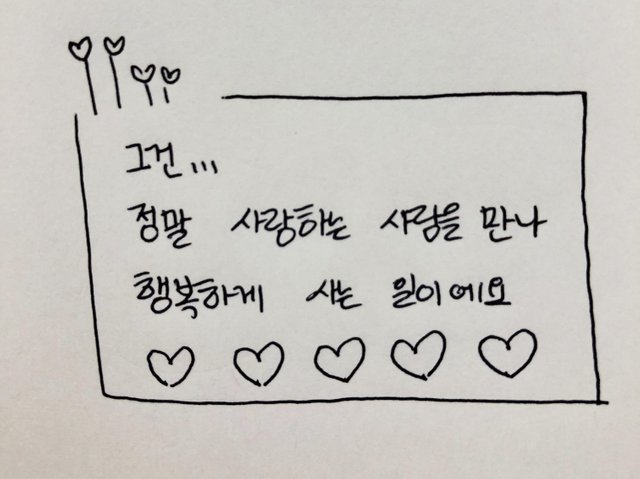 그건...
정말 사랑하는 사람을 만나
행복하게 사는 일이에요